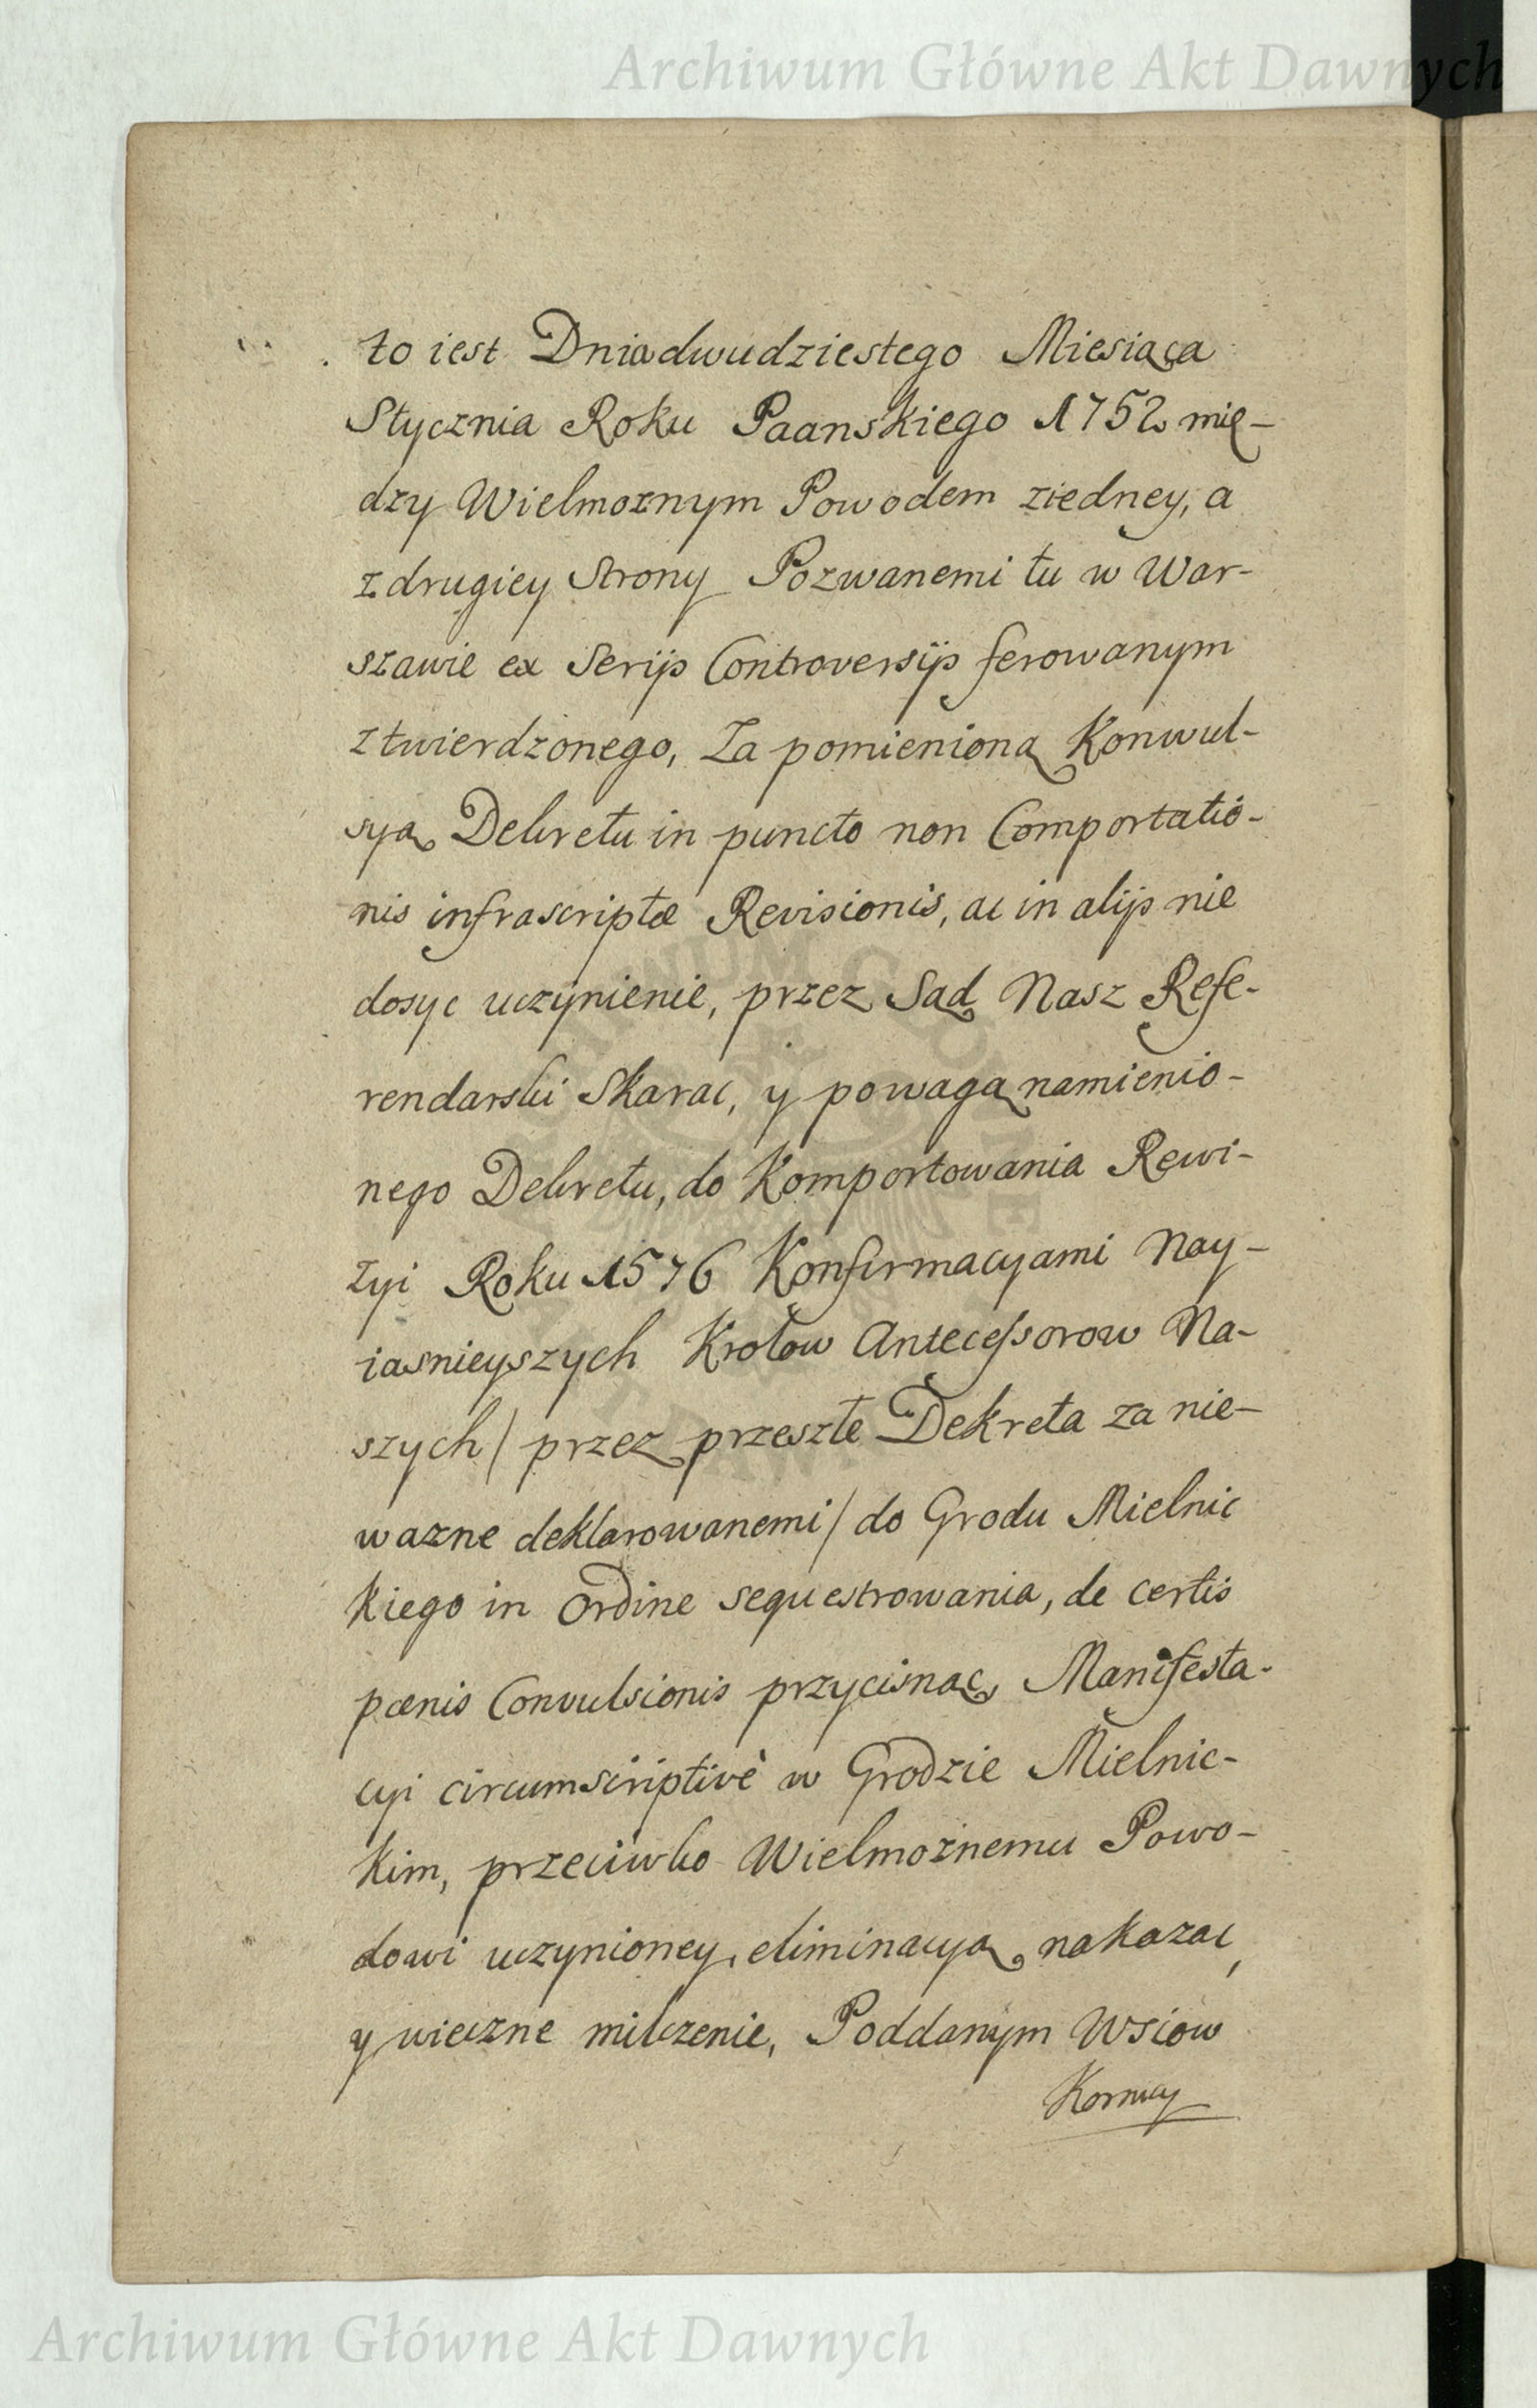 Archiwum Główne Akt Dawnych
to iest Dnia dwudziestego Miesiąca
Stycznia Roku Paanskiego 1752 mię-
dzy Wielmoznym Powodem ziedney, a
z drugiey Strony Pozwanemi tu w War-
szawie ex Serijs Controversijs ferowanym
ztwierdzonego, Za pomienioną Konwul-
syą Dekretu in puncto non Comportatio-
nis infrascriptæ Revisionis, ac in alijs nie
dosyc uczynienie, przez Sąd Nasz Refe-
rendarski Skarac, y powagą namienio-
nego Dekretu, do Komportowania Rewi-
zyi Roku 1576 Konfirmacyami Nay-
iasnieyszych Krolow Antecessorow Na-
szych / przez przeszłe Dekreta za nie-
wazne deklarowanemi / do Grodu Mielnic
kiego in Ordine sequestrowania, de certis
pœnis Convulsionis przycisnąc, Manifesta-
cyi circumscriptivè w Grodzie Mielnic-
kim, przeciwko Wielmożnemu Powo-
dowi uczynioney, eliminacyą nakazac,
y wieczne milczenie, Poddanym Wsiow
Kornicy
Archiwum Główne Akt Dawnych